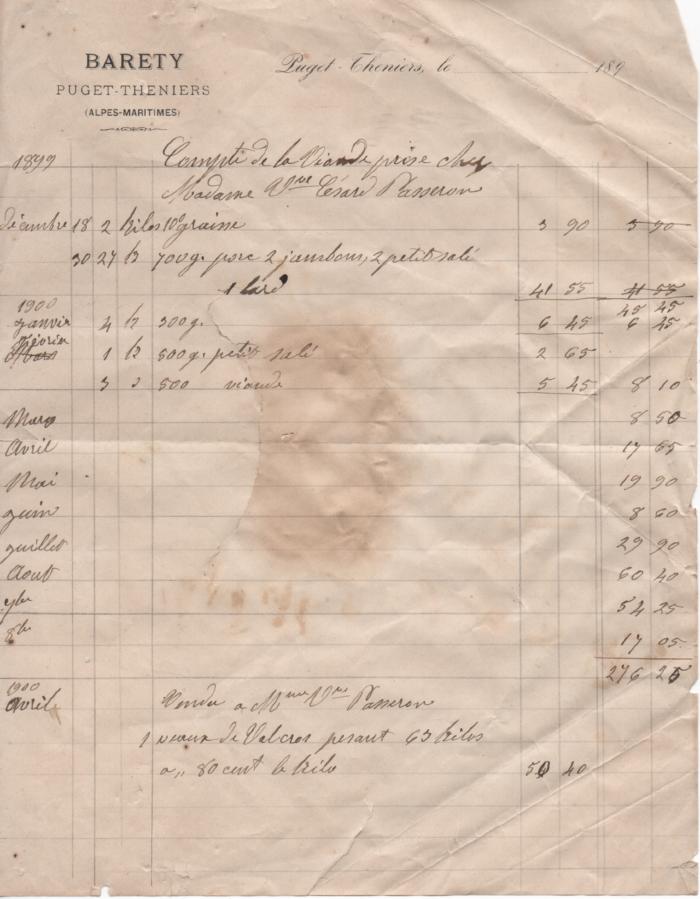 BARETY
PUGET-THENIERS
(ALPES-MARITIMES)
Puget-Theniers, le 189
1899 Compte de la Viande prise chez
Madame Vve César Passeron
Décembre 18 2 kilos 10 graisse 3 90 3 90
30 27 k 700g. porc 2 jambons, 2 petit salé
1 lard 41 55 41 55
45 45
1900
Janvier 4 k 300g. 6 45 6 45
Février
Mars 1 k 500g. petit salé 2 65
3 500 viande 5 45 8 10
Mars 8 50
Avril 17 65
Mai 19 90
Juin 8 60
Juillet 29 90
Aout 60 40
7bre 54 25
8bre 17 05
276 25
1900
Avril Vendu a Mme Vve Passeron
1 veaux de Valcros pesant 63 kilos
a,, 80 cent le kilo 50 40